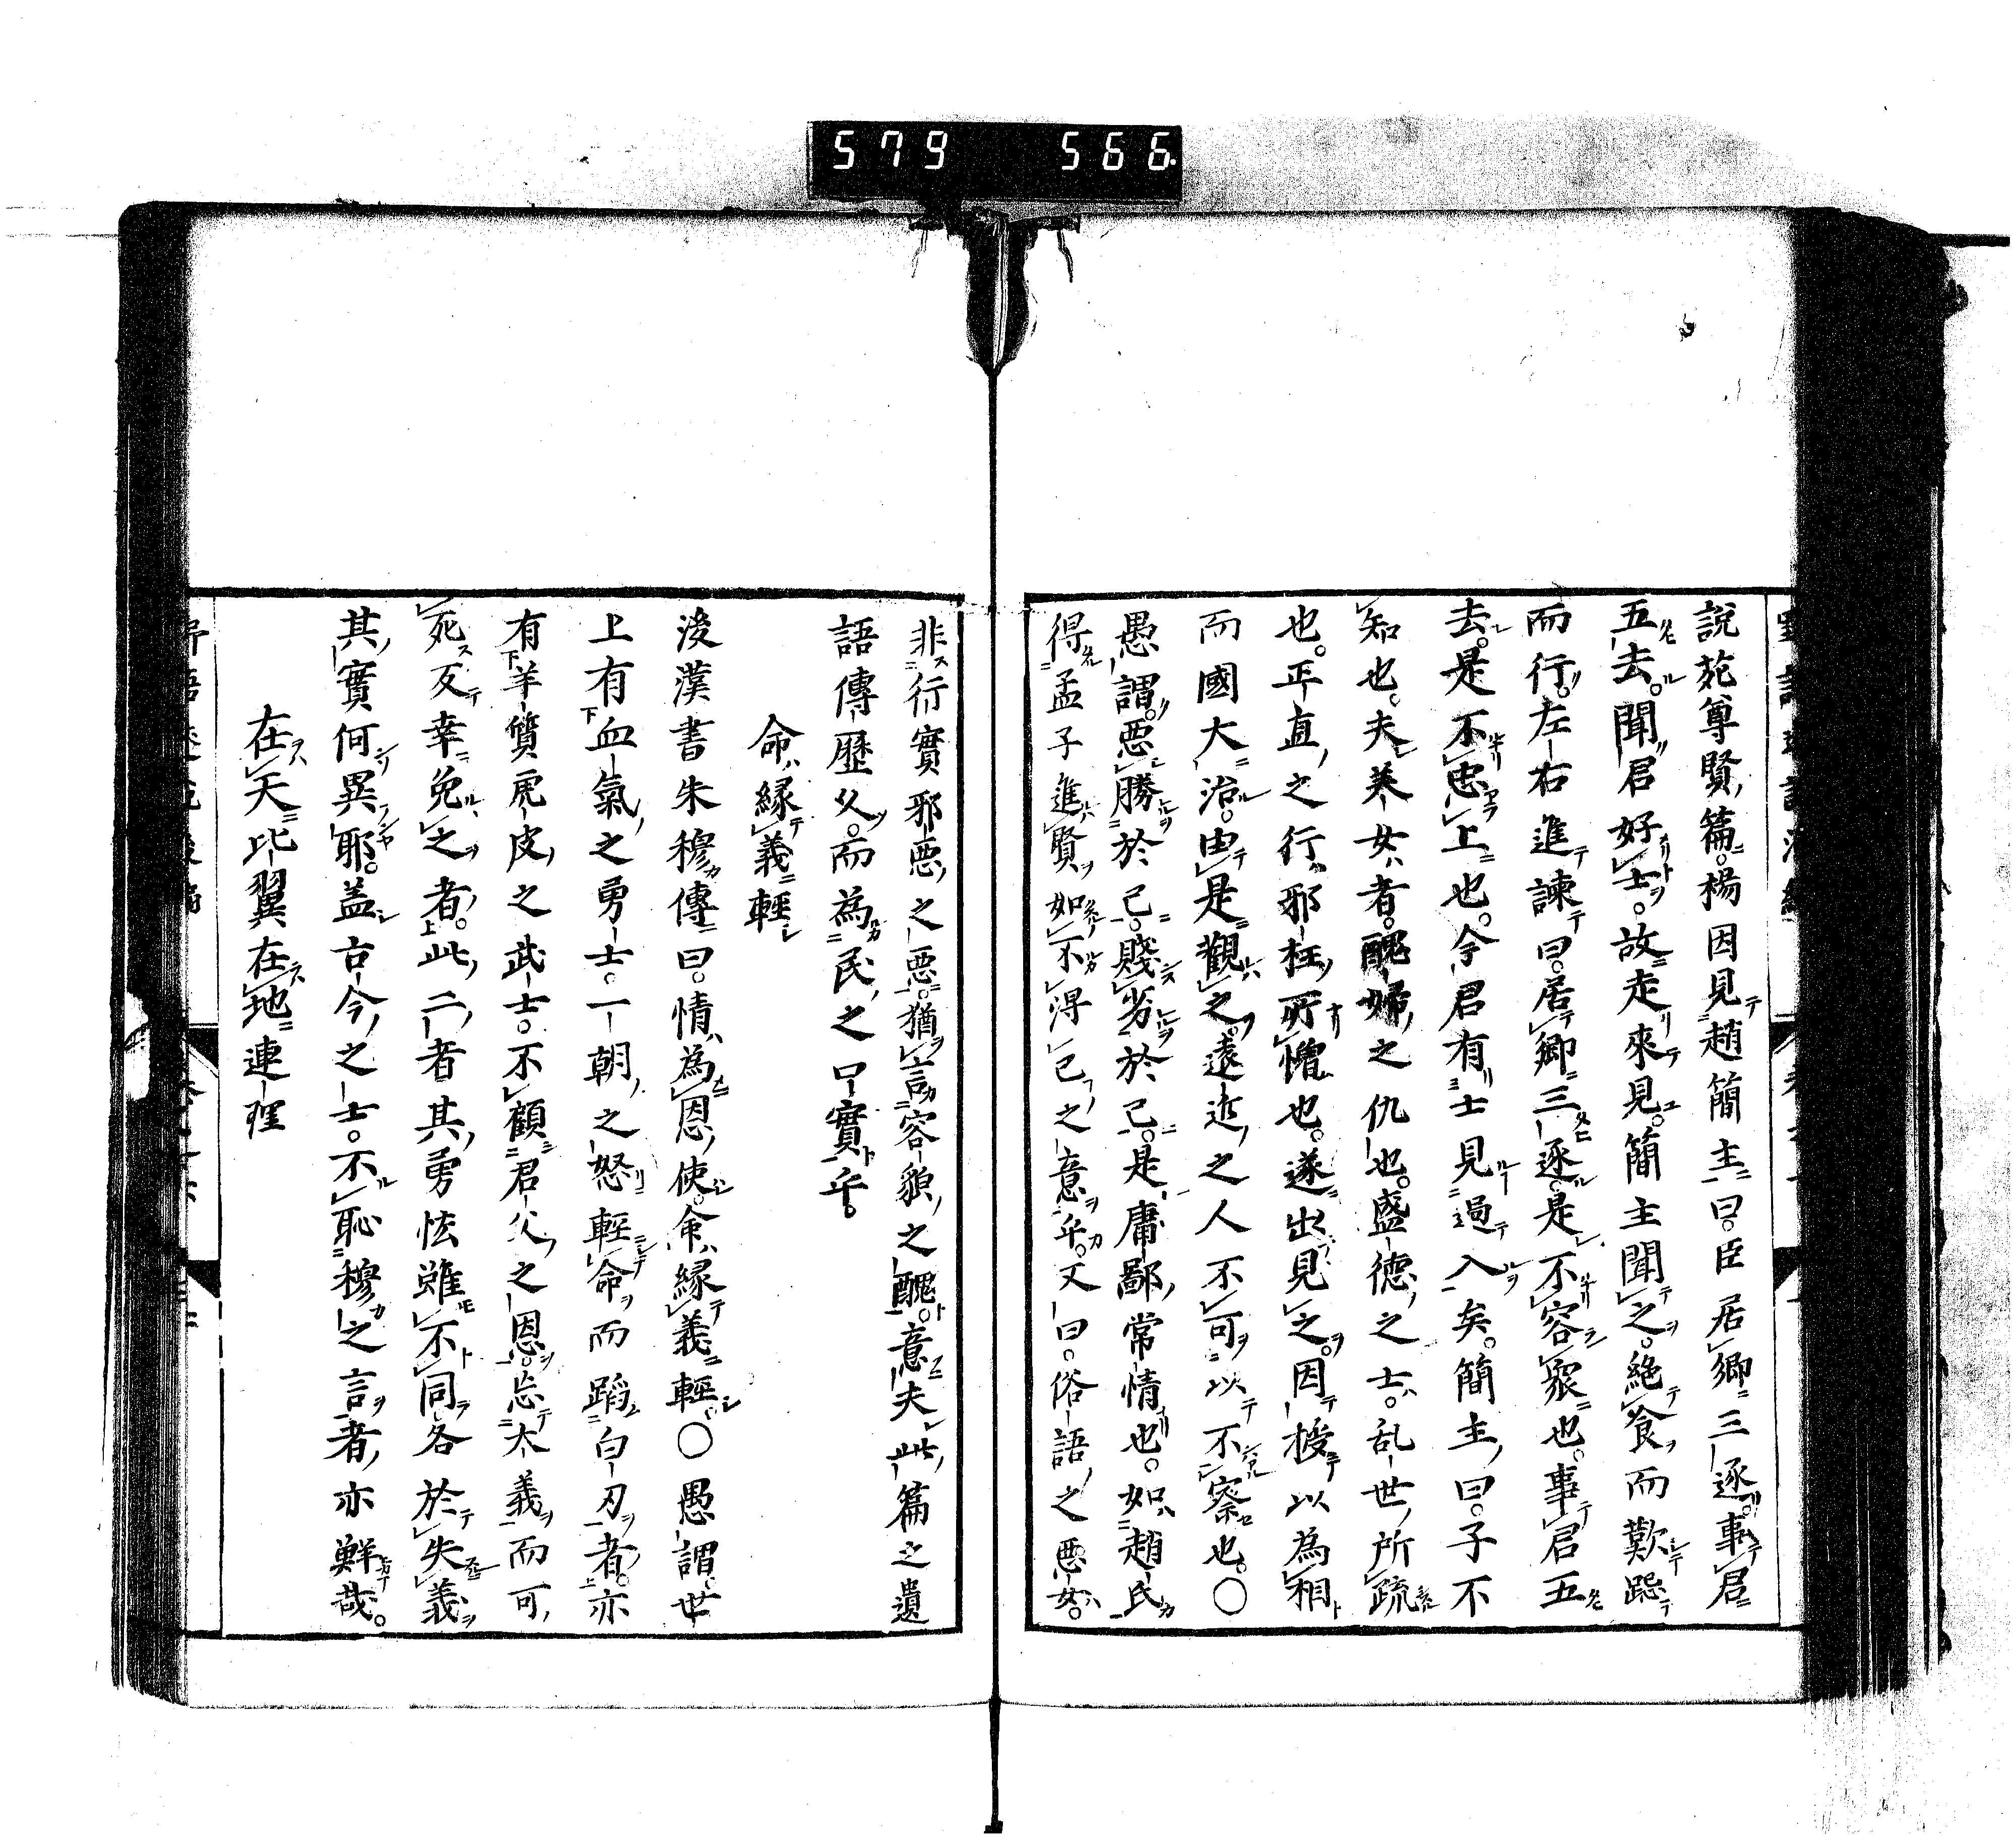 579 566
說苑尊賢篇楊因見趙簡主曰臣居卿三逐事君
五去聞君好士故走來見簡主聞之絶食而歎跽
而行左右進諫曰居卿三逐是不容衆也事君五
去是不忠上也今君有士見過入矣簡主曰子不
知也夫美女者醜婦之仇也盛德之士乱世所疏
也正直之行邪枉所憎也遂出見之因授以為相
而國大治由是觀之遠近之人不可以不察也○
愚謂惡勝於己賤劣於己是庸鄙常情也如趙氏
得孟子進賢如不得已之意乎又曰俗語之惡女
非行實邪惡之惡猶言容貌之醜意夫此篇之遺
語傳歷久而為民之口實乎
命緣義輕
後漢書朱穆傳曰情為恩使命緣義輕○愚謂世
上有血氣之勇士一朝之怒輕命而蹈白刃者亦
有羊質虎皮之武士不顧君父之恩忘大義而可
死反幸免之者此二者其勇怯雖不同各於失義
其實何異耶盖古今之士不恥穆之言者亦鮮哉
在天比翼在地連理